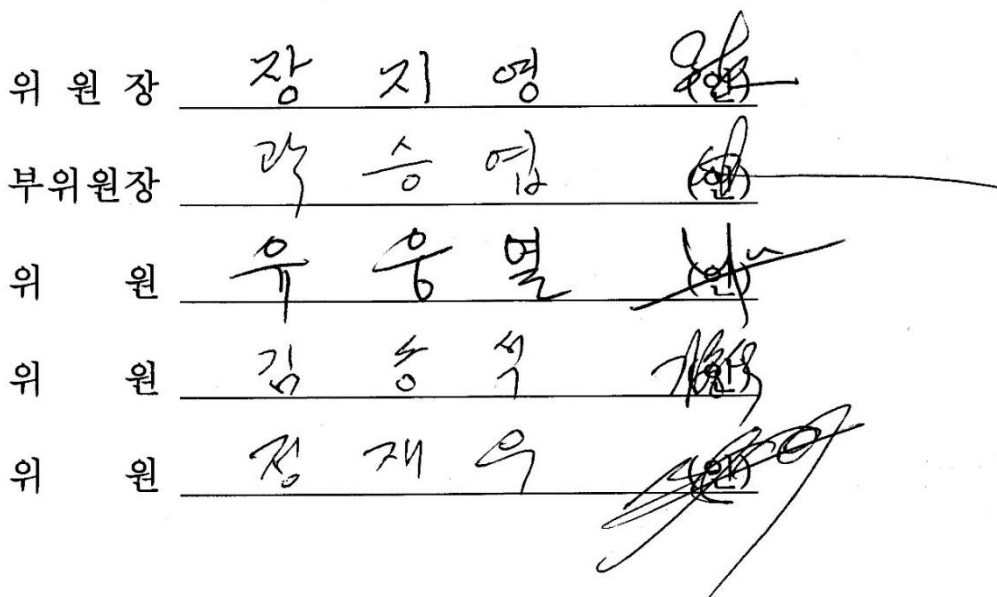 위 원 장 장 지 영 (인)
부위원장 곽 승 엽 (인)
위 원 유 웅 열 (인)
위 원 김 승 석 (인)
위 원 정 재 우 (인)